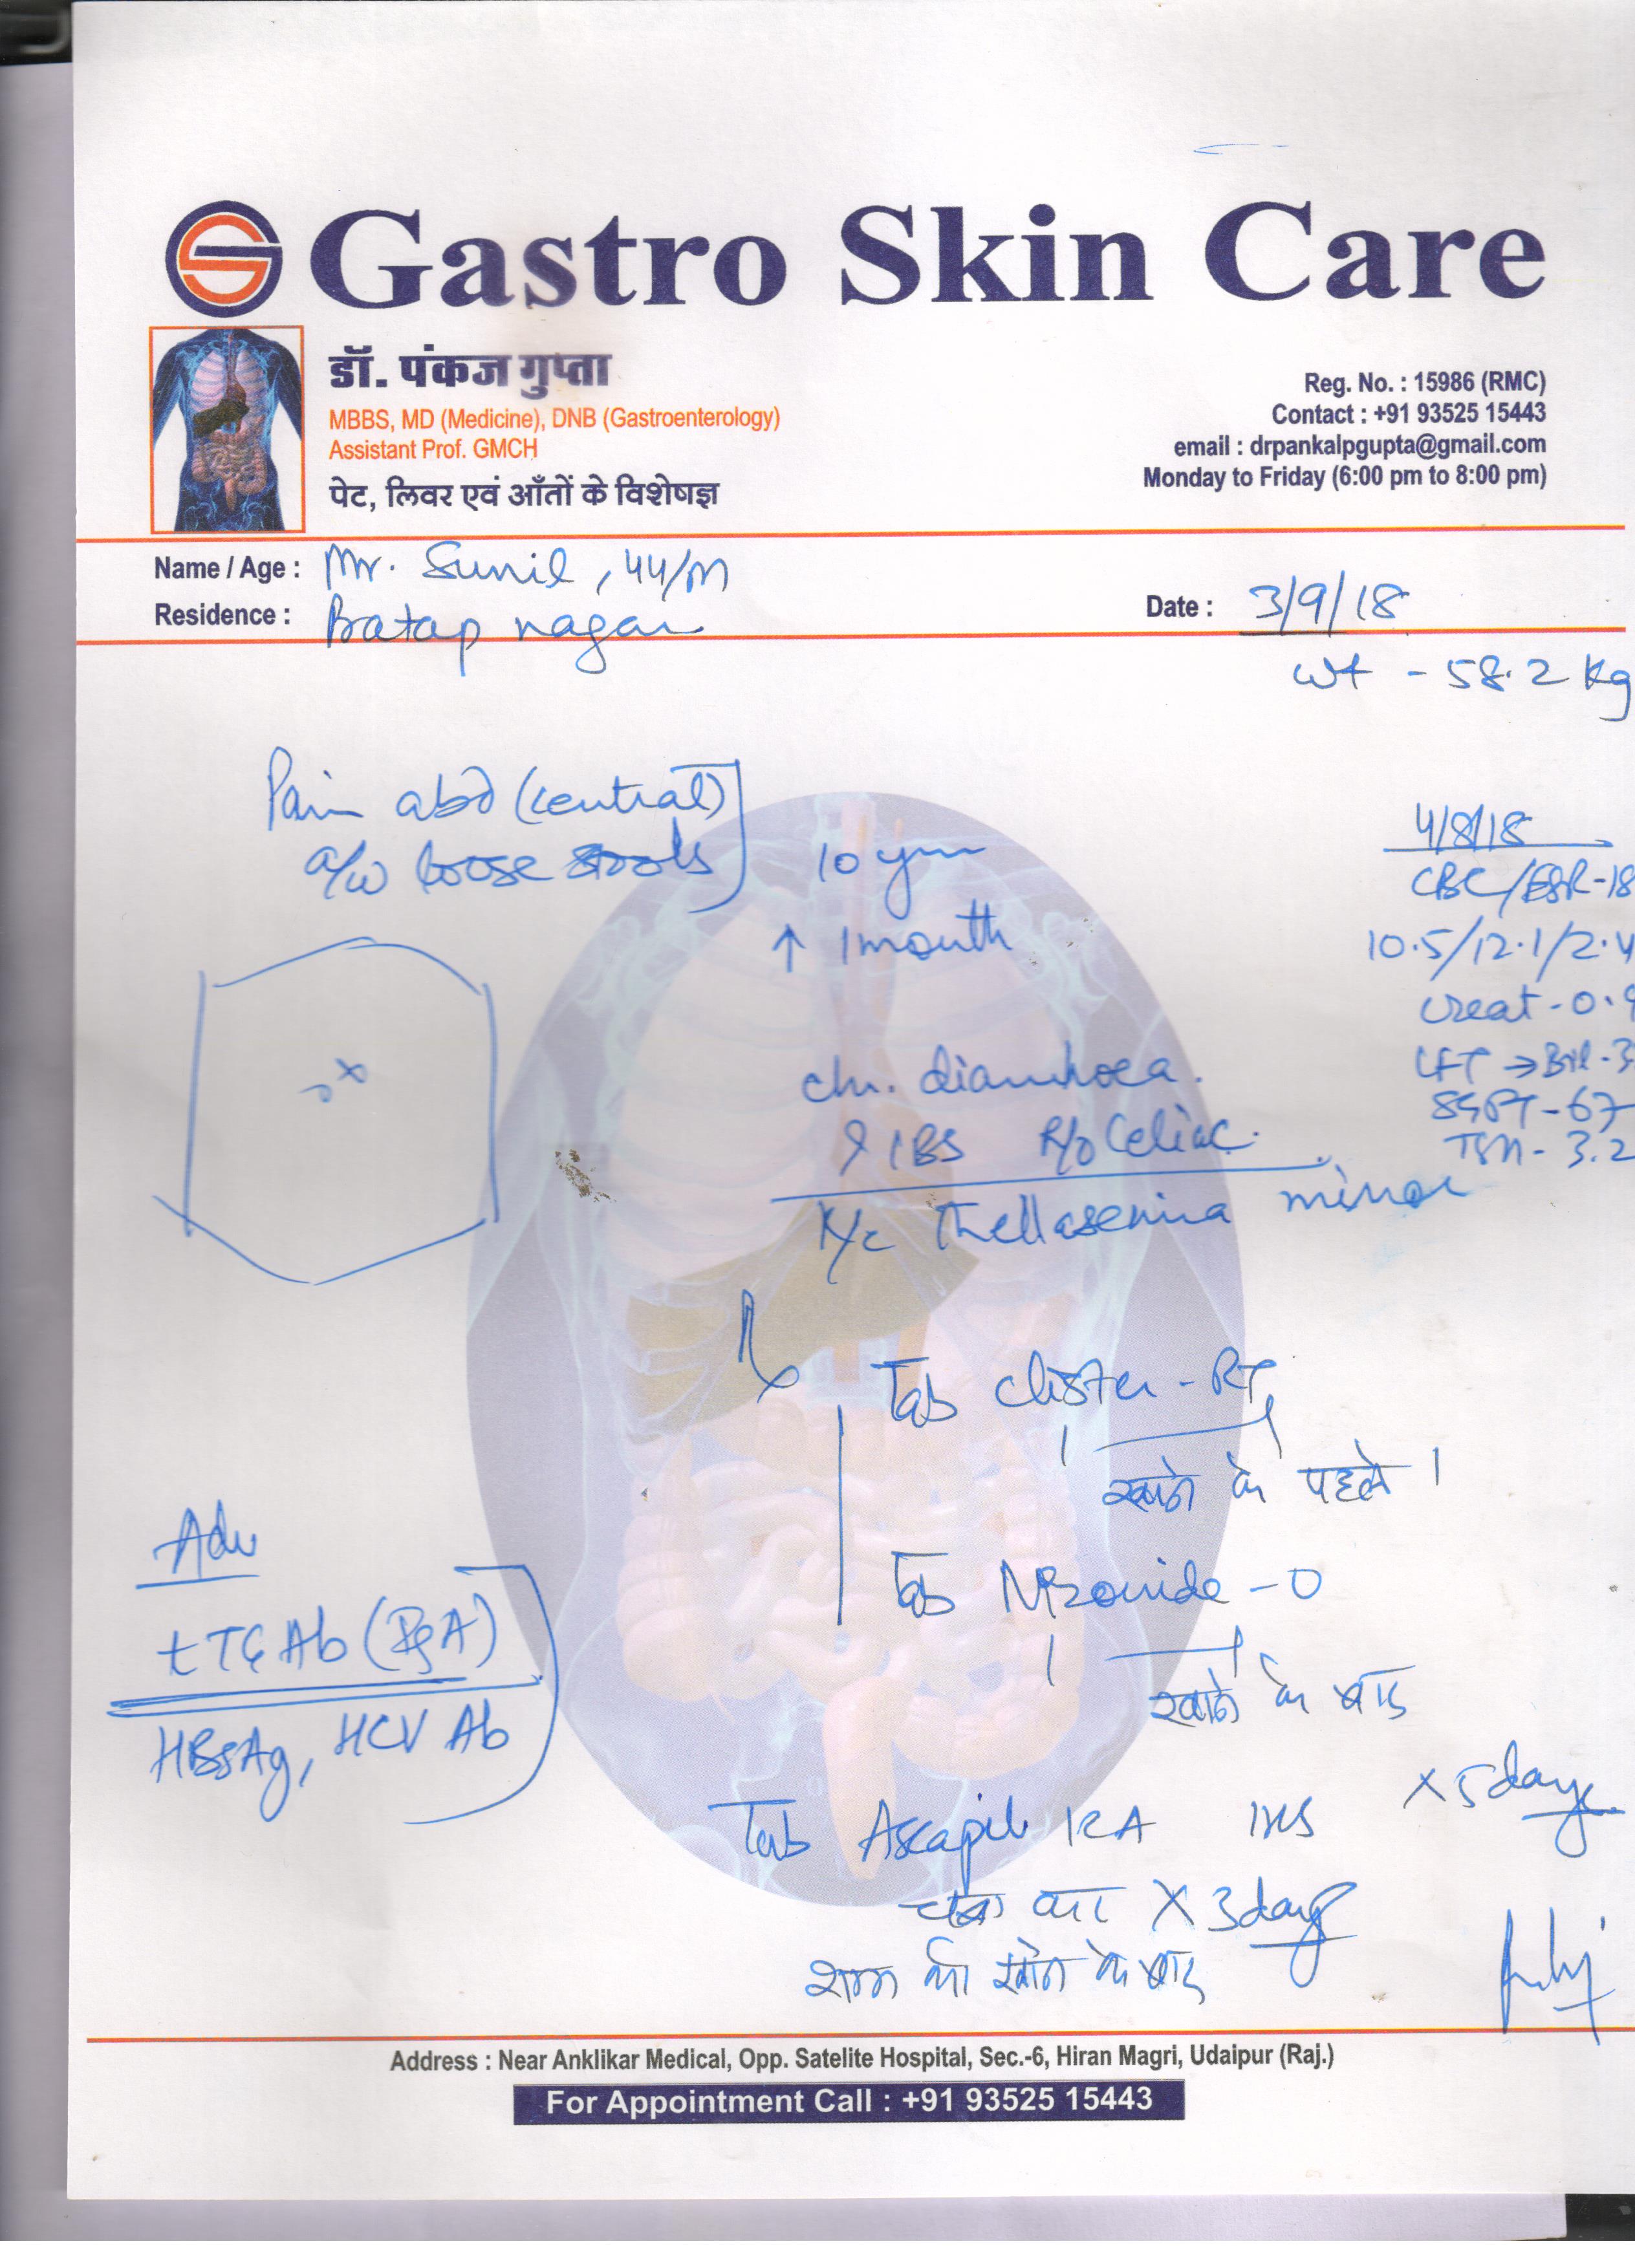 Gastro Skin Care
डॉ. पंकज गुप्ता
MBBS, MD (Medicine), DNB (Gastroenterology)
Assistant Prof. GMCH
पेट, लिवर एवं आँतों के विशेषज्ञ
Reg. No. : 15986 (RMC)
Contact : +91 93525 15443
email : drpankalpgupta@gmail.com
Monday to Friday (6:00 pm to 8:00 pm)
Name / Age : Mr. Sunil, 44/M
Residence : Pratap nagar
Date : 3/9/18
wt - 58.2 kg
Pain abd (central)
a/w loose stools
10 year
↑ 1 month
4/8/18
CBC/ESR-18
10.5/12.1/2.4
Creat - 0.9
LFT → Bil - 3
SGPT - 67
TSH - 3.2
chr. diarrhoea.
? IBS R/o Celiac.
K/c thellasemia minor
Tab
- RT
1 1
खाने के पहले ।
Tab
- O
1 1
खाने के बाद
x 5 days
Adv
tTG Ab (IgA)
HBsAg, HCV Ab
Tab
बार x 3 days
शाम को खाने के बाद
Address : Near Anklikar Medical, Opp. Satelite Hospital, Sec.-6, Hiran Magri, Udaipur (Raj.)
For Appointment Call : +91 93525 15443